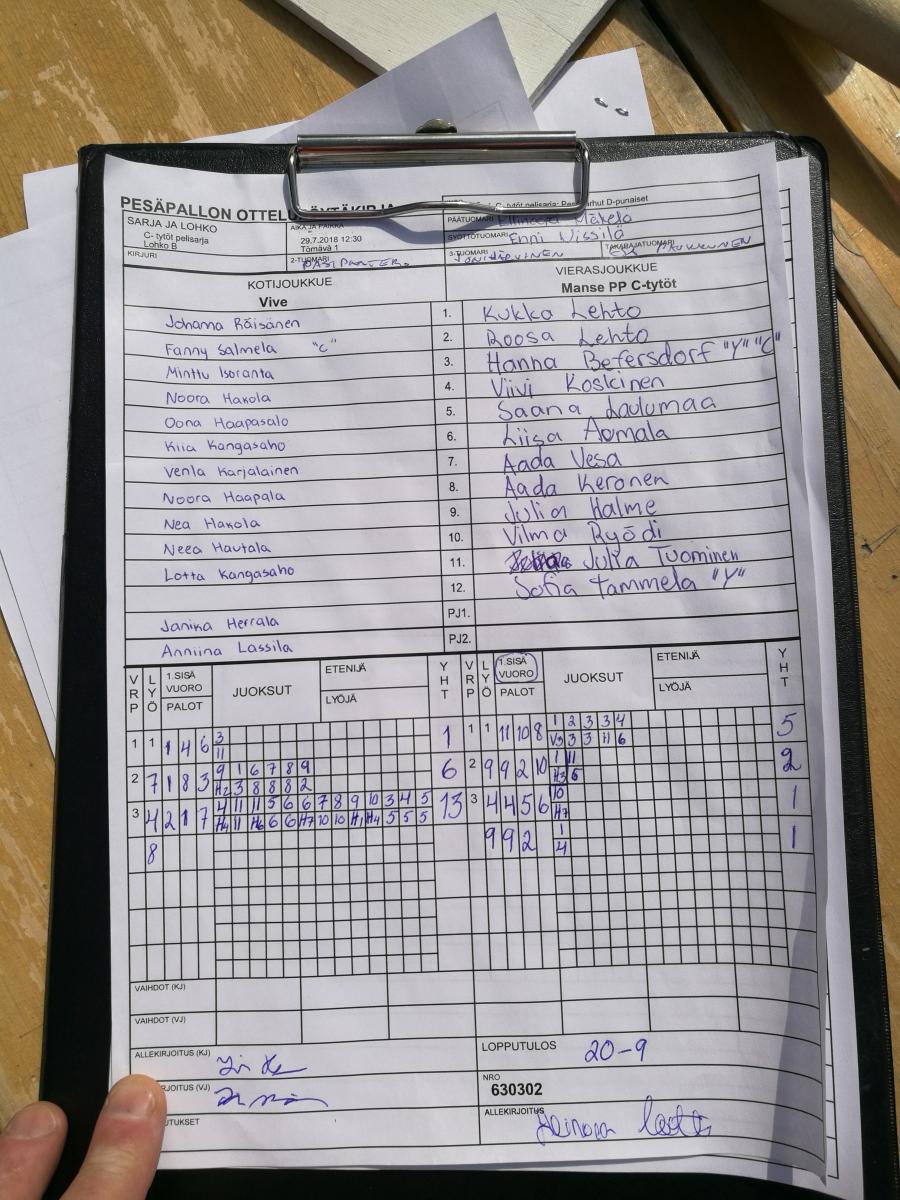 PESÄPALLON OTTELUPÖYTÄKIRJA
SARJA JA LOHKO
C- tytöt pelisarja
Lohko B
AIKA JA PAIKKA
29.7.2018 12:30
Tömävä 1
C- tytöt pelisarja:
D-punaiset
PÄÄTUOMARI
Mäkelä
SYÖTTÖTUOMARI Enni Nissilä
KIRJURI
2-TUOMARI
3-TUOMARI
TAKARAJATUOMARI
KOTIJOUKKUE
Vive
VIERASJOUKKUE
Manse PP C-tytöt
Johanna Räisänen 1. Kukka Lehto
Fanny Salmela "C" 2. Roosa Lehto
Minttu Isoranta 3. Hanna Befersdorf "Y" "C"
Noora Hakola 4. Viivi Koskinen
Oona Haapasalo 5. Saana Laulumaa
Kiia Kangasaho 6. Liisa Aomala
Venla Karjalainen 7. Aada Vesa
Noora Haapala 8. Aada Keronen
Nea Hakola 9. Julia Halme
Neea Hautala 10. Vilma Ryödi
Lotta Kangasaho 11. Julia Tuominen
12. Sofia Tammela "Y"
Janika Herrala PJ1.
Anniina Lassila PJ2.
VRP LYÖ 1.SISÄ VUORO PALOT JUOKSUT ETENIJÄ LYÖJÄ YHT VRP LYÖ 1.SISÄ VUORO PALOT JUOKSUT ETENIJÄ LYÖJÄ YHT
1 1 1 4 6 3 1 1 1 11 10 8 1 2 3 3 4 5
11 V3 3 3 H 6
2 7 1 8 3 9 1 6 7 8 9 6 2 9 9 2 10 1 11 2
H2 3 8 8 8 2 H3 6
3 4 2 1 7 4 11 11 5 6 6 7 8 9 10 3 4 5 13 3 4 4 5 6 10 1
H4 11 H6 6 6 H7 10 10 H1 H4 5 5 5 H7
8 9 9 2 1 1
4
VAIHDOT (KJ)
VAIHDOT (VJ)
ALLEKIRJOITUS (KJ)
LOPPUTULOS 20-9
RJOITUS (VJ)
NRO
630302
UTUKSET
ALLEKIRJOITUS